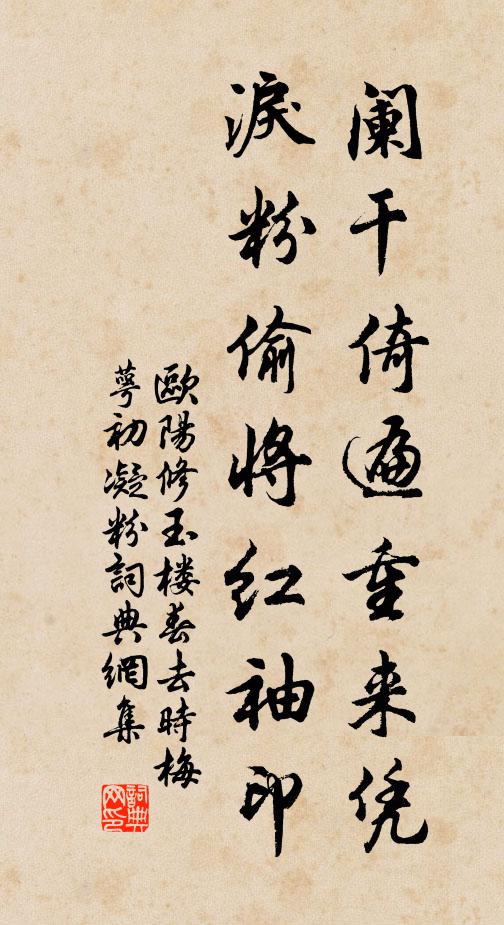 阑干倚遍重来凭
淚粉偷将红袖印
歐陽修玉楼春去時梅
萼初凝粉詞典網集
詞典网印